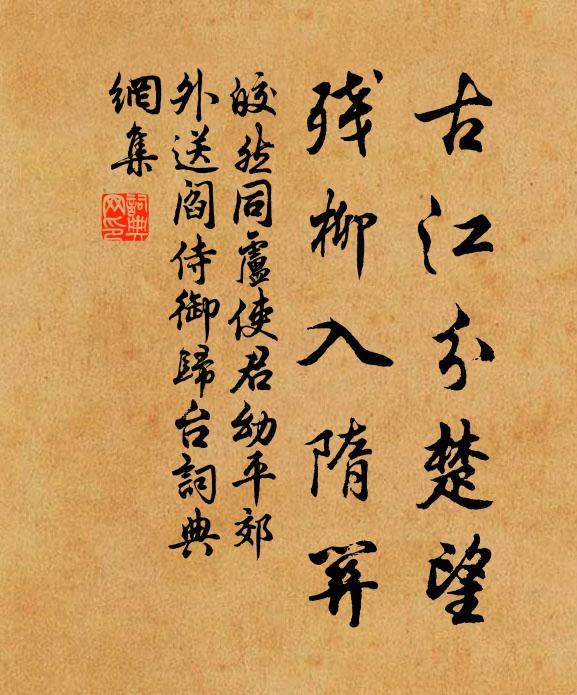 古江分楚望
残柳入隋關
皎然同盧使君幼平郊
外送閻侍御歸台詞典
網集
詞典网印